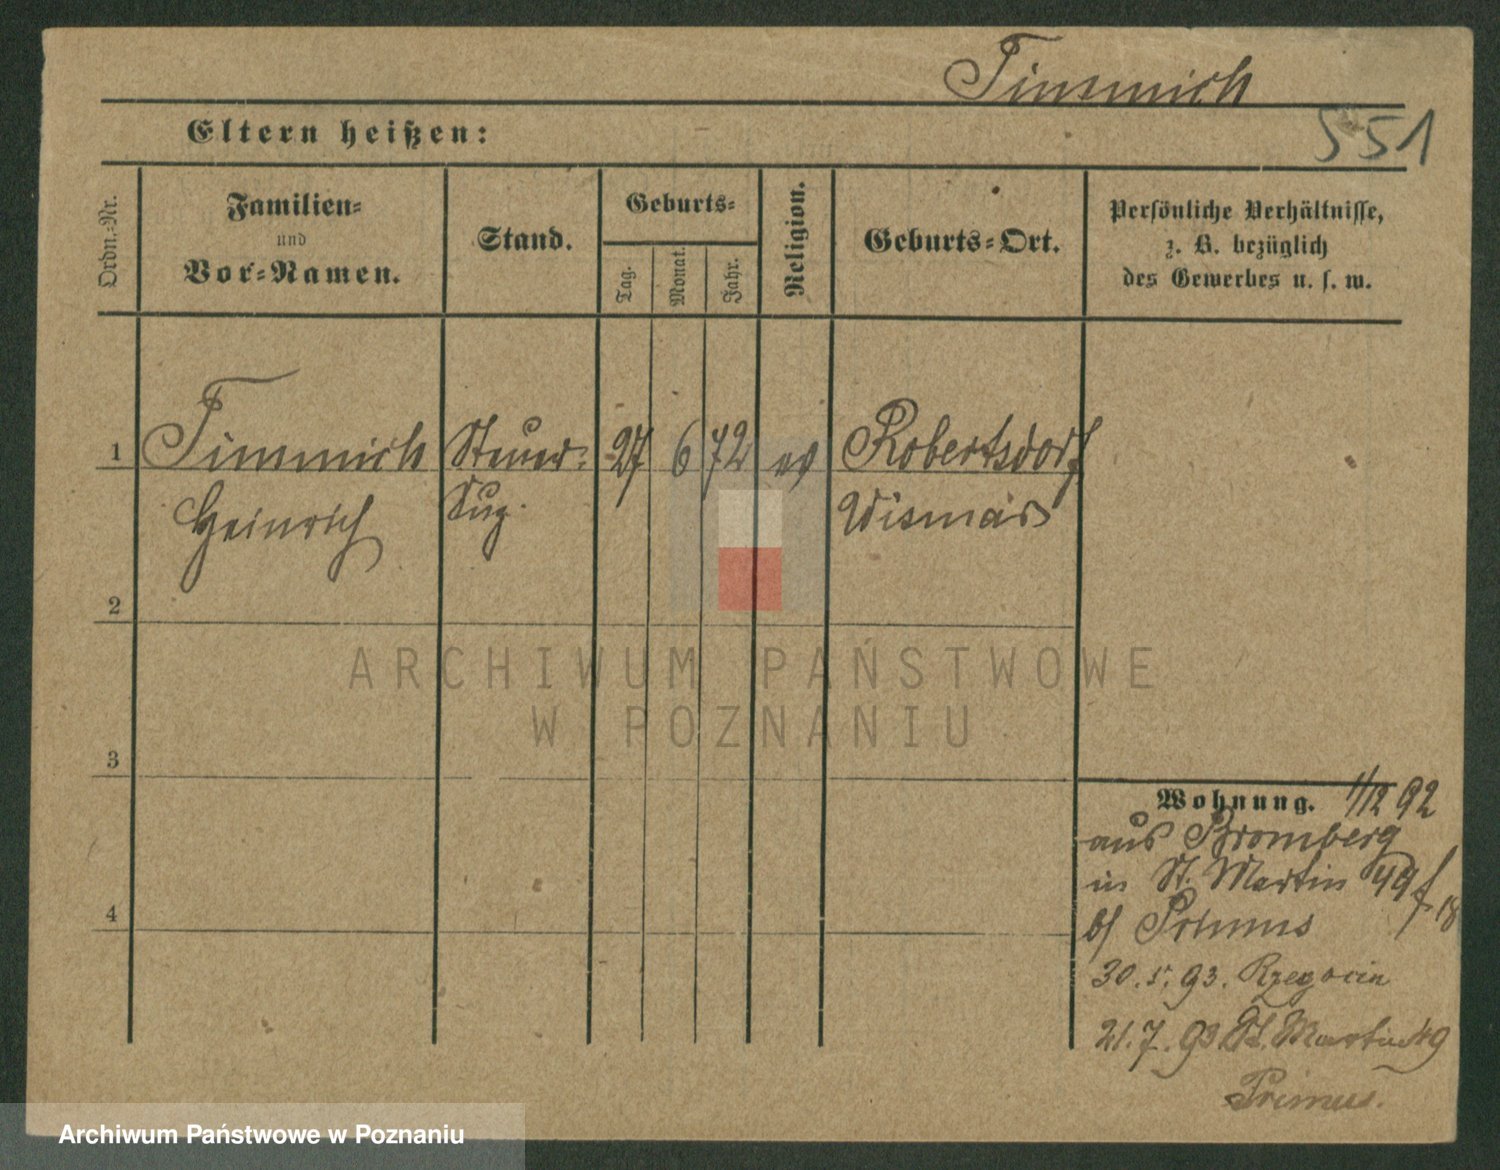 Timmich
551
Eltern heißen:
Ordn.-Nr.
Familien-
und
Vor-Namen.
Stand.
Geburts-
Tag.
Monat.
Jahr.
Religion.
Geburts-Ort.
Persönliche Verhältnisse,
z. B. bezüglich
des Gewerbes u. s. w.
1 Timmich Steuer- 27 6 72 ev Robertsdorf
Heinrich Sup. Wismar
2
3
4
Wohnung. 1/12 92
aus Bromberg
in St. Martin 49
b/ Primus
30.5.93. Rzegocin
21.7.93 St. Martin 49
Primus.
ARCHIWUM PAŃSTWOWE
W POZNANIU
Archiwum Państwowe w Poznaniu